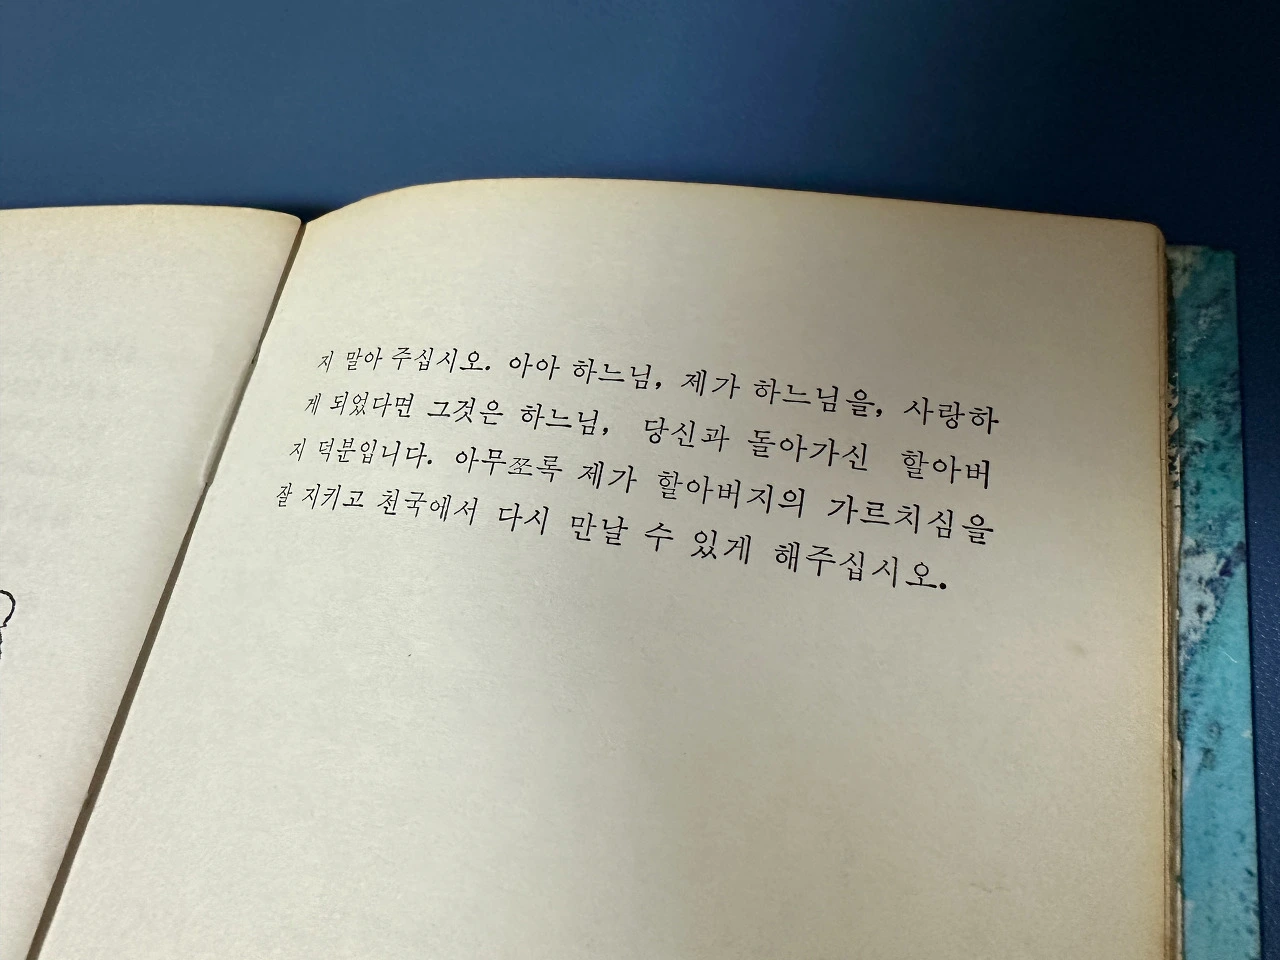 지 말아 주십시오. 아아 하느님, 제가 하느님을, 사랑하
게 되었다면 그것은 하느님, 당신과 돌아가신 할아버
지 덕분입니다. 아무쪼록 제가 할아버지의 가르치심을
잘 지키고 천국에서 다시 만날 수 있게 해주십시오.